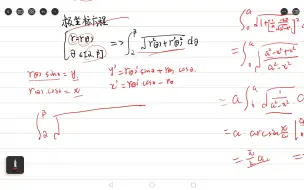 极坐标方程
{ r=r(θ)
θ∈[α,β] => ∫_α^β √(r²(θ)+r'²(θ)) dθ
r(θ) sinθ = y
r(θ) cosθ = x
y' = r'(θ) sinθ + r(θ) cosθ
x' = r'(θ) cosθ - r(θ)
∫_α^β √
= ∫_0^a √((a²-x²+x²)/(a²-x²))
= a ∫_0^a √(1/(a²-x²))
= a · arcsin x/a |_0^a
= π/2 a